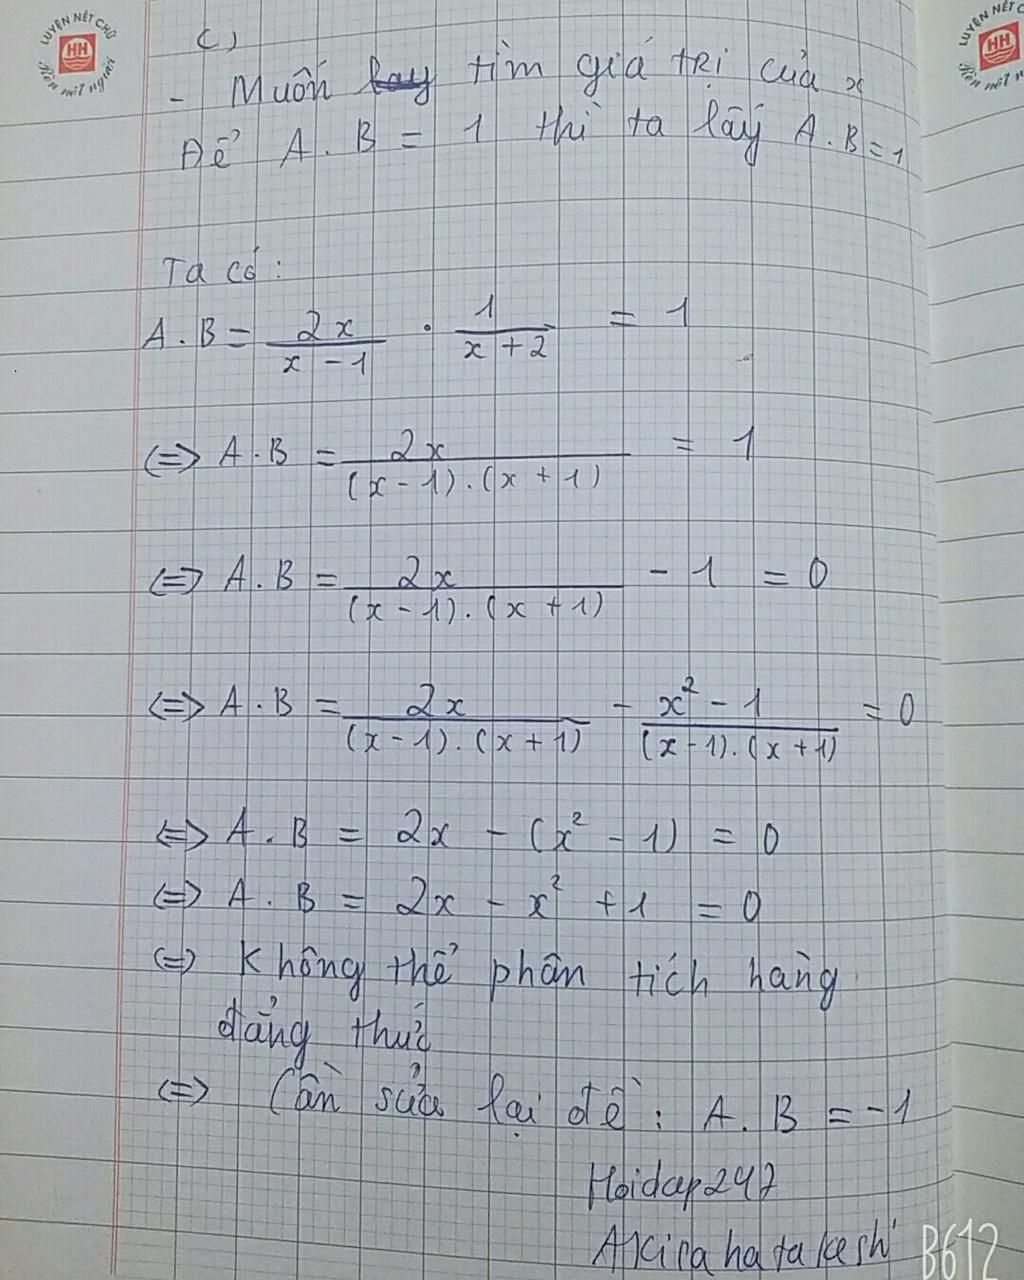 LUYỆN NÉT CHỮ
HH
Rèn nết người
LUYỆN NÉT C
HH
Rèn nết
c)
- Muốn tìm giá trị của x
Để A . B = 1 thì ta lấy A . B = 1
Ta có :
A . B = 2x / (x - 1) . 1 / (x + 2) = 1
<=> A . B = 2x / (x - 1) . (x + 1) = 1
<=> A . B = 2x / (x - 1) . (x + 1) - 1 = 0
<=> A . B = 2x / (x - 1) . (x + 1) - x² - 1 / (x - 1) . (x + 1) = 0
<=> A . B = 2x - (x² - 1) = 0
<=> A . B = 2x - x² + 1 = 0
<=> Không thể phân tích hằng
đẳng thức
<=> Cần sửa lại đề : A . B = -1
Hoidap247
Akirahatakeshi
B612